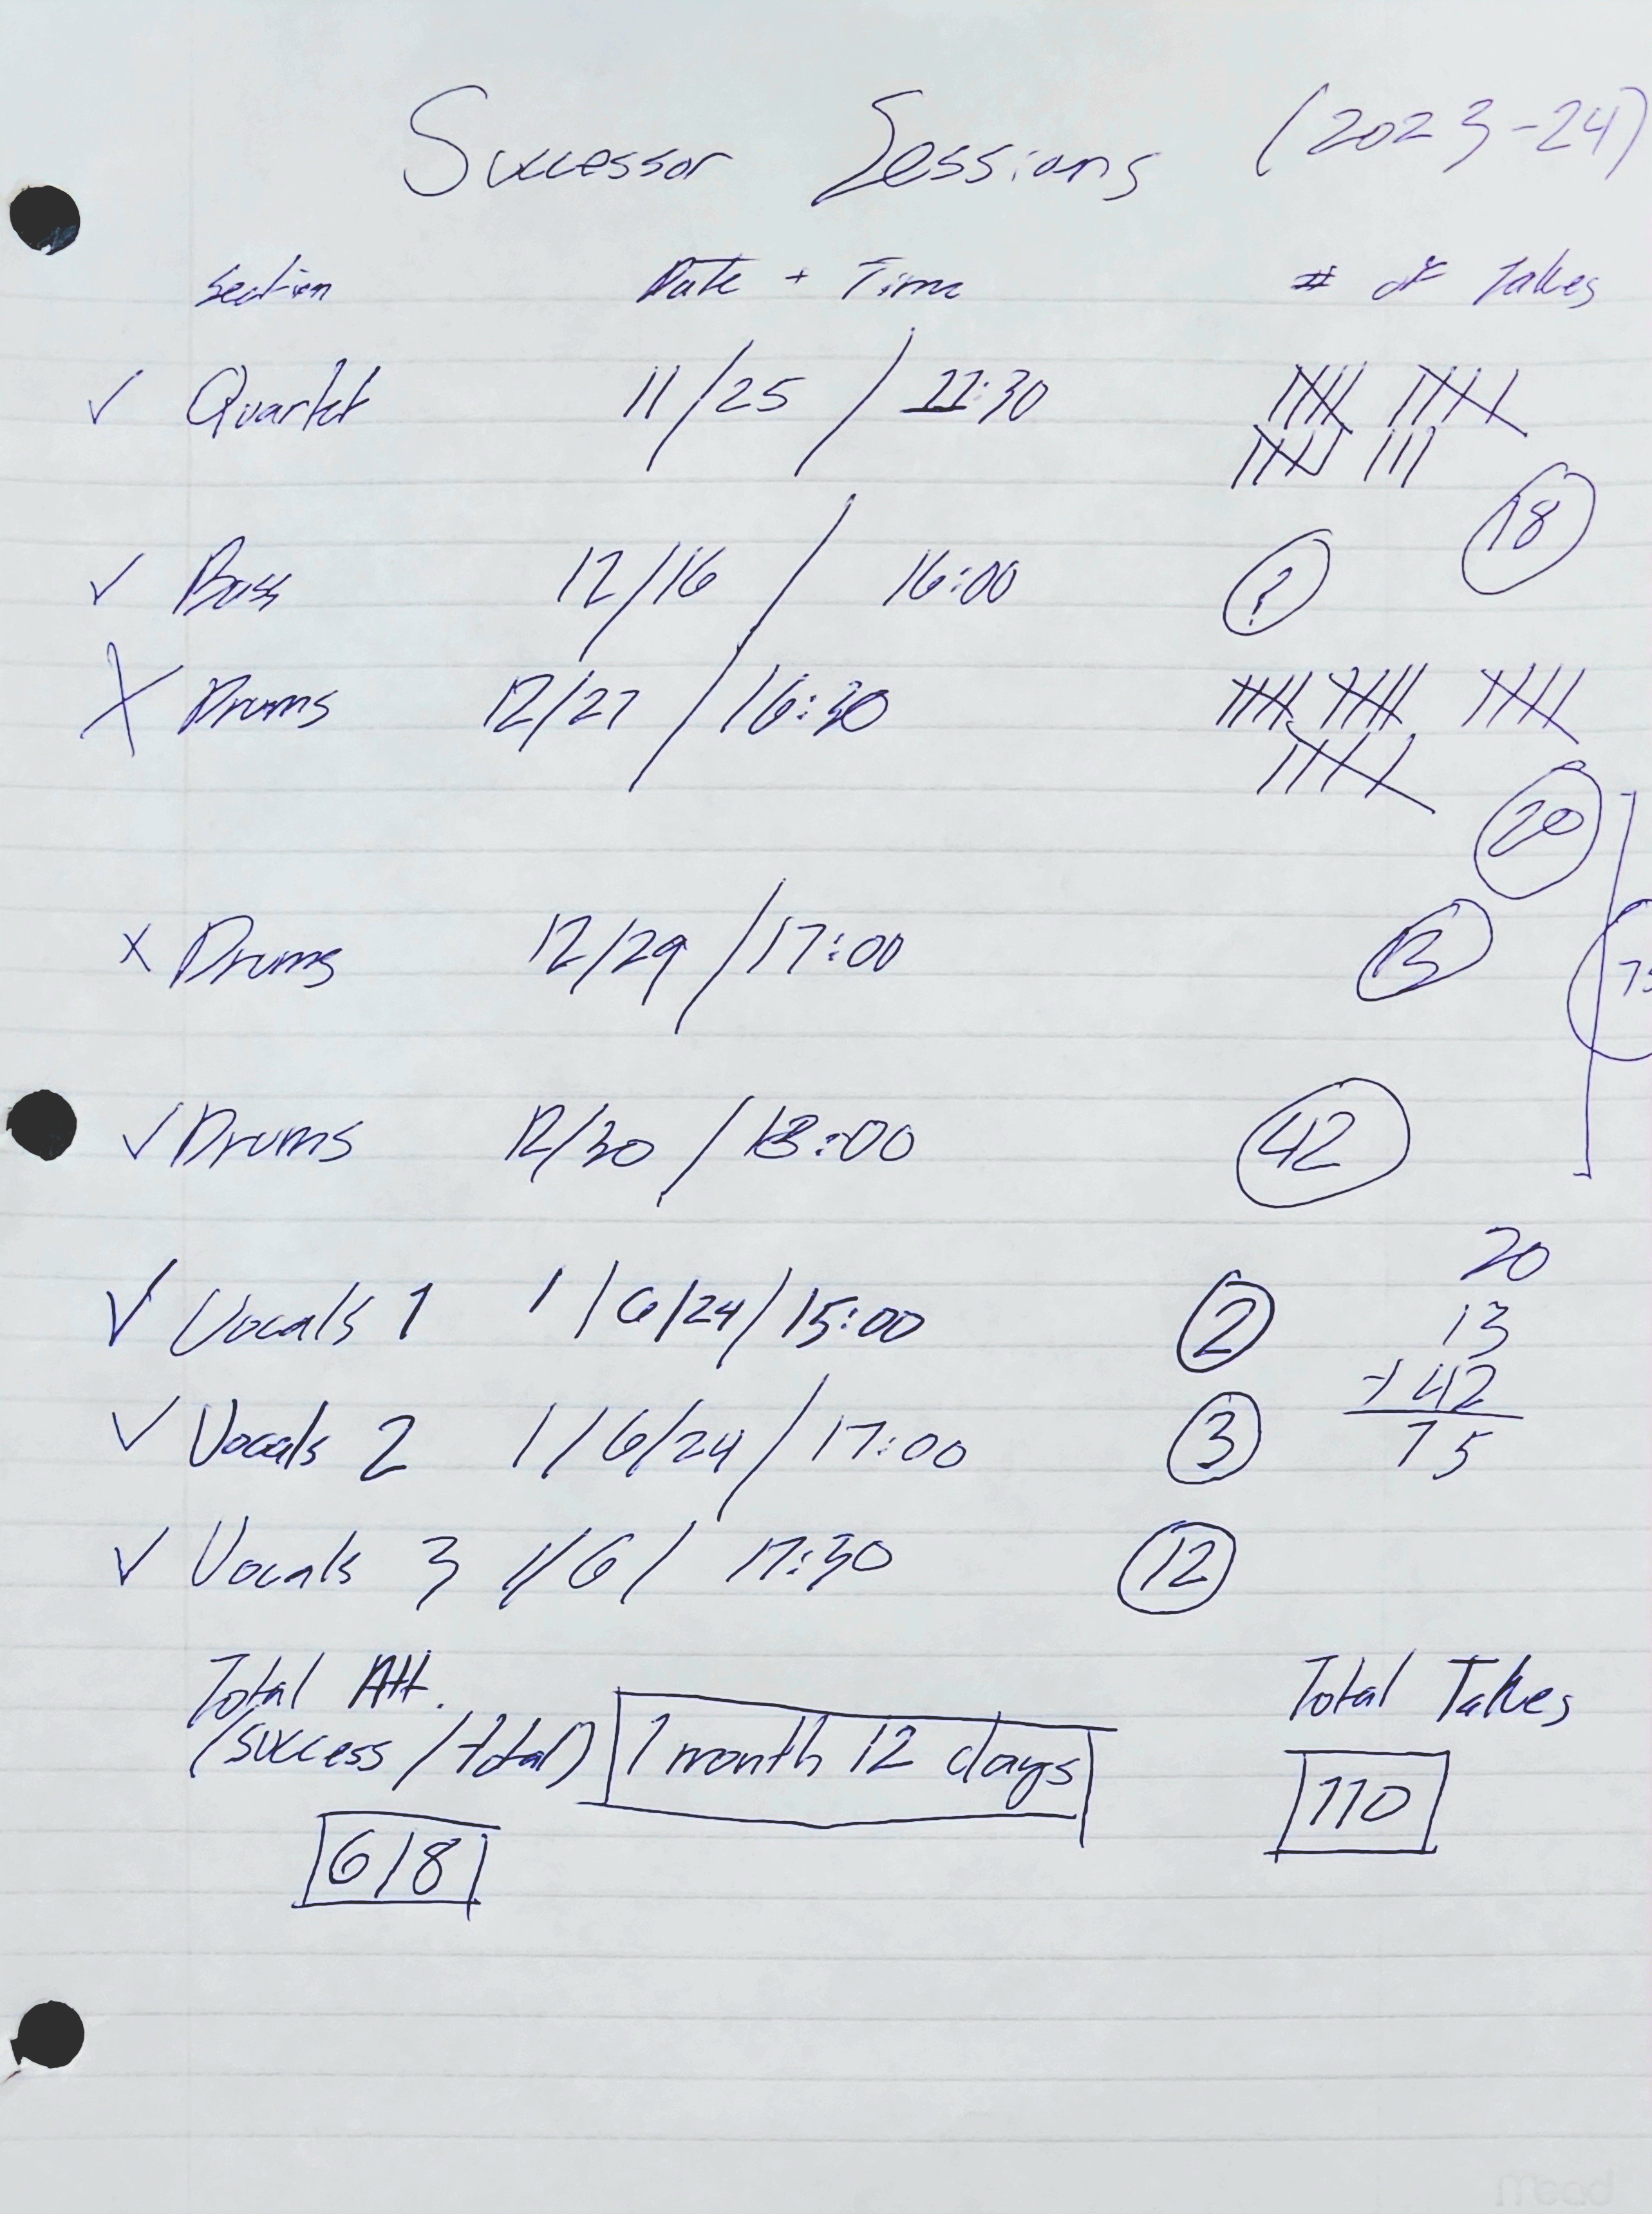 Successor Sessions (2023-24)
Section Date + Time # of Takes
✓ Quartet 11/25 / 11:30
18
✓ Bass 12/16 / 16:00 ?
X Drums 12/27 / 16:30
20
x Drums 12/29 / 17:00 13
75
✓ Drums 12/30 / 18:00 42
20
✓ Vocals 1 1/6/24/15:00 2 13
+42
✓ Vocals 2 1/6/24/17:00 3 75
✓ Vocals 3 1/6/ 17:30 12
Total Att. Total Takes
(success/total) 1 month 12 days 110
6/8
mead